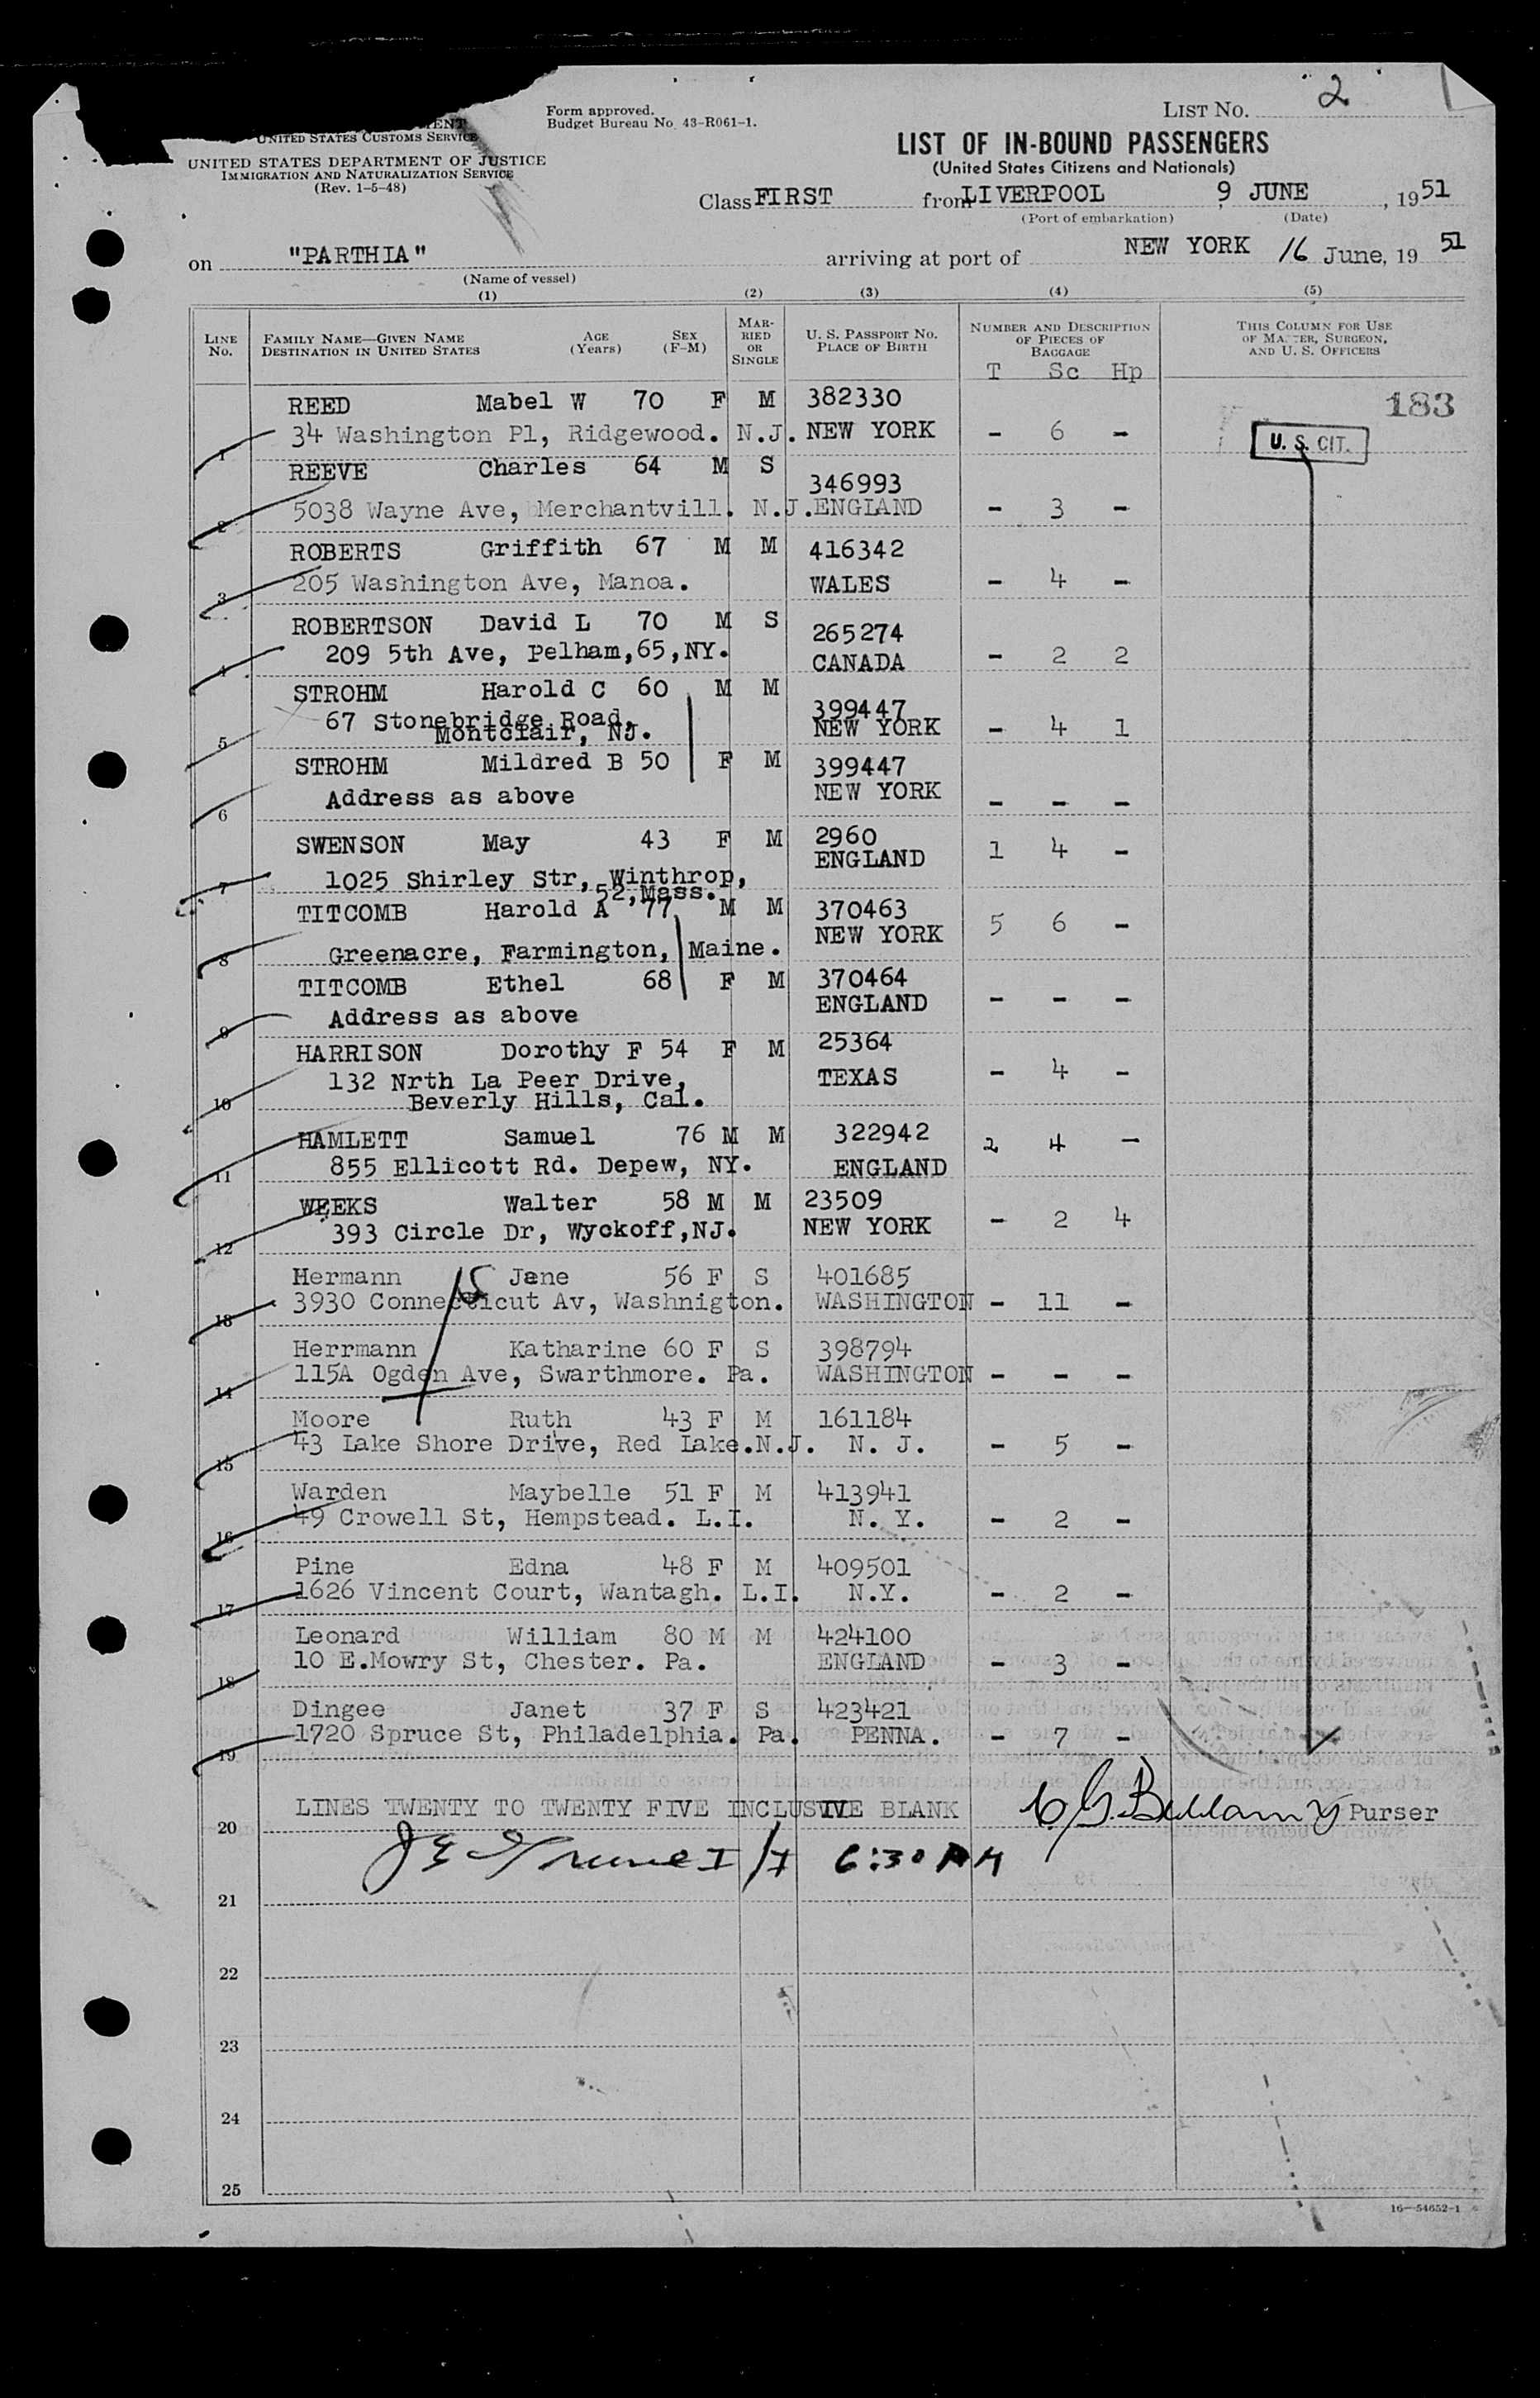 LIST No. 2
Form approved.
Budget Bureau No. 43-R061-1.
UNITED STATES CUSTOMS SERVICE
UNITED STATES DEPARTMENT OF JUSTICE
IMMIGRATION AND NATURALIZATION SERVICE
(Rev. 1-5-48)
LIST OF IN-BOUND PASSENGERS
(United States Citizens and Nationals)
Class FIRST from LIVERPOOL 9 JUNE, 1951
(Port of embarkation) (Date)
on "PARTHIA" arriving at port of NEW YORK 16 June, 19 51
(Name of vessel)
(1) (2) (3) (4) (5)
LINE No. FAMILY NAME—GIVEN NAME DESTINATION IN UNITED STATES AGE (Years) SEX (F-M) MARRIED OR SINGLE U. S. PASSPORT No. PLACE OF BIRTH NUMBER AND DESCRIPTION OF PIECES OF BAGGAGE THIS COLUMN FOR USE OF MASTER, SURGEON, AND U. S. OFFICERS
T Sc Hp
183
U. S. CIT.
REED Mabel W 70 F M 382330
1 34 Washington Pl, Ridgewood. N.J. NEW YORK - 6 -
REEVE Charles 64 M S 346993
2 5038 Wayne Ave, Merchantvill. N.J. ENGLAND - 3 -
ROBERTS Griffith 67 M M 416342
3 205 Washington Ave, Manoa. WALES - 4 -
ROBERTSON David L 70 M S 265274
4 209 5th Ave, Pelham,65,NY. CANADA - 2 2
STROHM Harold C 60 M M 399447
5 67 Stonebridge Road, NEW YORK - 4 1
Montclair, NJ.
STROHM Mildred B 50 F M 399447
6 Address as above NEW YORK - - -
SWENSON May 43 F M 2960
ENGLAND 1 4 -
7 1025 Shirley Str, Winthrop,
52,Mass.
TITCOMB Harold A 77 M M 370463
NEW YORK 5 6 -
8 Greenacre, Farmington, Maine.
TITCOMB Ethel 68 F M 370464
ENGLAND - - -
9 Address as above
HARRISON Dorothy F 54 F M 25364
132 Nrth La Peer Drive, TEXAS - 4 -
10 Beverly Hills, Cal.
HAMLETT Samuel 76 M M 322942 2 4 -
11 855 Ellicott Rd. Depew, NY. ENGLAND
WEEKS Walter 58 M M 23509
12 393 Circle Dr, Wyckoff,NJ. NEW YORK - 2 4
Hermann Jane 56 F S 401685
13 3930 Connecticut Av, Washnigton. WASHINGTON - 11 -
Herrmann Katharine 60 F S 398794
14 115A Ogden Ave, Swarthmore. Pa. WASHINGTON - - -
Moore Ruth 43 F M 161184
15 43 Lake Shore Drive, Red Lake.N.J. N. J. - 5 -
Warden Maybelle 51 F M 413941
16 49 Crowell St, Hempstead. L.I. N. Y. - 2 -
Pine Edna 48 F M 409501
17 1626 Vincent Court, Wantagh. L.I. N.Y. - 2 -
Leonard William 80 M M 424100
18 10 E.Mowry St, Chester. Pa. ENGLAND - 3 -
Dingee Janet 37 F S 423421
19 1720 Spruce St, Philadelphia. Pa. PENNA. - 7 -
20 LINES TWENTY TO TWENTY FIVE INCLUSIVE BLANK Purser
6:30 PM
21
22
23
24
25
16—54652-1